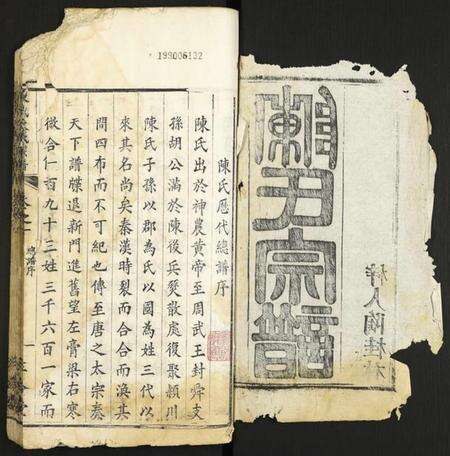 陳氏宗譜
199006132
陳氏厯代總譜序
陳氏出於神農黃帝至周武王封舜支
孫胡公滿於陳後兵燹散處復聚潁川
陳氏子孫以郡為氏以國為姓三代以
來其名尚矣秦漢時裂而合合而渙其
間四布而不可紀也傳至唐之太宗奏
天下譜牒退新門進舊望左膏粱右寒
微合仁百九十三姓三千六百一家而
總譜序
一